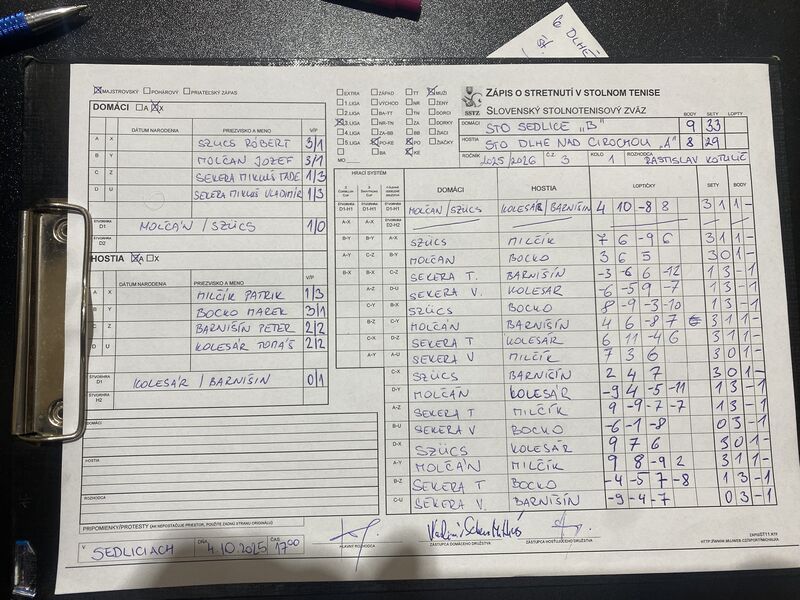 6 DLHÉ
MAJSTROVSKÝ POHÁROVÝ PRIATEĽSKÝ ZÁPAS
DOMÁCI A X
DÁTUM NARODENIA PRIEZVISKO A MENO V/P
A X SZÜCS RÓBERT 3/1
B Y MOLČAN JOZEF 3/1
C Z SEKERA MIKUŠ TADE 1/3
D U SEKERA MIKUŠ VLADIMÍR 1/3
ŠTVORHRA D1 MOLČAN / SZÜCS 1/0
HOSTIA A X
DÁTUM NARODENIA PRIEZVISKO A MENO V/P
A X MILČÍK PATRIK 1/3
B Y BOCKO MAREK 3/1
C Z BARNIŠIN PETER 2/2
D U KOLESÁR TOMÁŠ 2/2
ŠTVORHRA D1 KOLESÁR / BARNIŠIN 0/1
ŠTVORHRA H2
DOMÁCI
HOSTIA
ROZHODCA
PRIPOMIENKY/PROTESTY (AK NEPOSTAČUJE PRIESTOR, POUŽITE ZADNÚ STRANU ORIGINÁLU)
V SEDLICIACH DŇA 4.10.2025 ČAS 17:00
HLAVNÝ ROZHODCA
ZÁSTUPCA DOMÁCEHO DRUŽSTVA
ZÁSTUPCA HOSŤUJÚCEHO DRUŽSTVA
EXTRA ZÁPAD TT MUŽI
1.LIGA VÝCHOD NR ŽENY
2.LIGA BA-TT TN DORCI
3.LIGA NR-TN ZA DORKY
4.LIGA ZA-BB BB ŽIACI
5.LIGA PO-KE PO ŽIAČKY
MO BA KE
SSTZ
ZÁPIS O STRETNUTÍ V STOLNOM TENISE
SLOVENSKÝ STOLNOTENISOVÝ ZVÄZ
BODY SETY LOPTY
DOMÁCI STO SEDLICE „B" 9 33
HOSTIA STO DLHÉ NAD CIROCHOU „A" 8 29
ROČNÍK 2025/2026 Č.Z. 3 KOLO 1 ROZHODCA RASTISLAV KOTULIČ
HRACÍ SYSTÉM DOMÁCI HOSTIA LOPTIČKY SETY BODY
D1-H1 D1-H1 D1-H1 MOLČAN/SZÜCS KOLESÁR/BARNIŠIN 4 10 -8 8 3 1 1 -
A-X A-X D2-H2
B-Y B-Y A-X SZÜCS MILČÍK 7 6 -9 6 3 1 1 -
A-Y C-Z B-Y MOLČAN BOCKO 3 6 5 3 0 1 -
B-X B-X C-Z SEKERA T. BARNIŠIN -3 -6 6 -12 1 3 - 1
A-Z D-U SEKERA V. KOLESÁR -6 -5 9 -7 1 3 - 1
C-Y B-X SZÜCS BOCKO 8 -9 -3 -10 1 3 - 1
B-Z C-Y MOLČAN BARNIŠIN 4 6 -8 7 3 1 1 -
C-X D-Z SEKERA T KOLESÁR 6 11 -4 6 3 1 1 -
A-Y A-U SEKERA V MILČÍK 7 3 6 3 0 1 -
C-X SZÜCS BARNIŠIN 2 4 7 3 0 1 -
D-Y MOLČAN KOLESÁR -9 4 -5 -11 1 3 - 1
A-Z SEKERA T MILČÍK 9 -9 -7 -7 1 3 - 1
B-U SEKERA V BOCKO -6 -1 -8 0 3 - 1
D-X SZÜCS KOLESÁR 9 7 6 3 0 1 -
A-Y MOLČAN MILČÍK 9 8 -9 2 3 1 1 -
B-Z SEKERA T BOCKO -4 -5 7 -8 1 3 - 1
C-U SEKERA V. BARNIŠIN -9 -4 -7 0 3 - 1